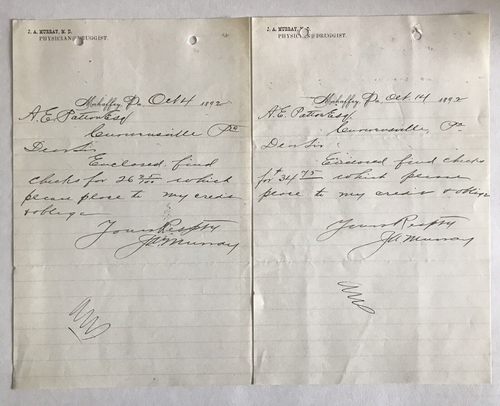 J. A. MURRAY, M. D.
PHYSICIAN & DRUGGIST.
Mahaffey, Pa. Oct 4 1892
A. E. Patton Esq
Curwensville Pa
Dear Sir
Enclosed find
checks for 26 /100 which
please place to my credit
& oblige
Yours Respty
J A Murray
J. A. MURRAY, M. D.
PHYSICIAN & DRUGGIST.
Mahaffey, Pa. Oct. 14 1892
A. E. Patton Esq
Curwensville, Pa
Dear Sir
Enclosed find checks
for 34 75 which please
place to my credit & oblige
Yours Respty
J A Murray